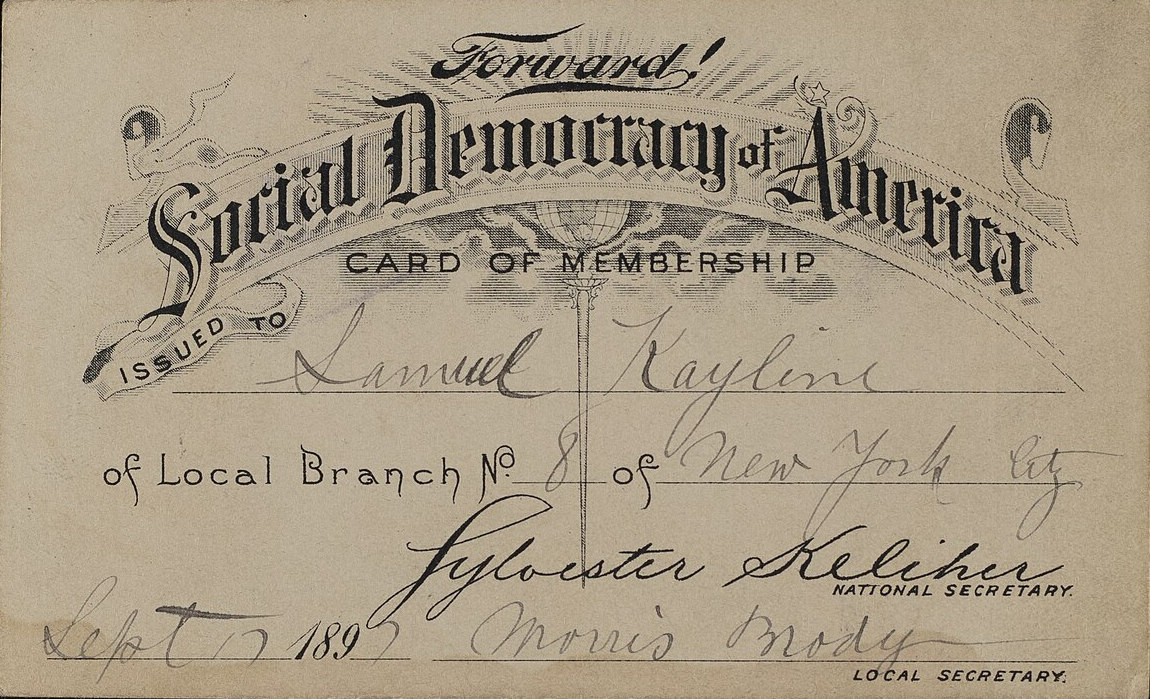 Forward!
Social Democracy of America
CARD OF MEMBERSHIP
ISSUED TO
Samuel Kayline
of Local Branch No. 8 of New York City
Sylvester Keliher
NATIONAL SECRETARY.
Sept 7 1897 Morris Brody
LOCAL SECRETARY.